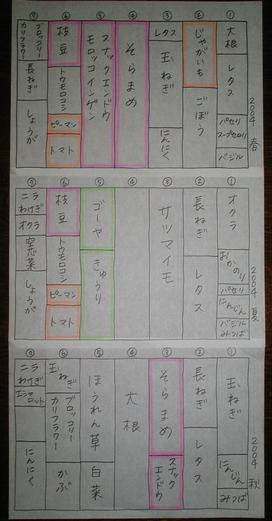 2004 春
①
大根
レタス
パセリ
スープセロリ
バジル
②
じゃがいも
ごぼう
③
レタス
玉ねぎ
にんにく
④
そらまめ
⑤
スナックエンドウ
モロッコインゲン
⑥
枝豆
トウモロコシ
ピーマン
トマト
⑦
ブロッコリー
カリフラワー
長ねぎ
しょうが
2004 夏
①
オクラ
おかのり
パセリ
にんじん
バジル
みつば
②
長ねぎ
レタス
③
サツマイモ
④
⑤
ゴーヤ
きゅうり
⑥
枝豆
トウモロコシ
ピーマン
トマト
⑦
ニラ
わけぎ
オクラ
空芯菜
しょうが
2004 秋
①
玉ねぎ
にんじん
みつば
②
長ねぎ
レタス
③
そらまめ
スナックエンドウ
④
大根
⑤
ほうれん草
白菜
⑥
玉ねぎ
ブロッコリー
カリフラワー
かぶ
⑦
ニラ
わけぎ
にんにく